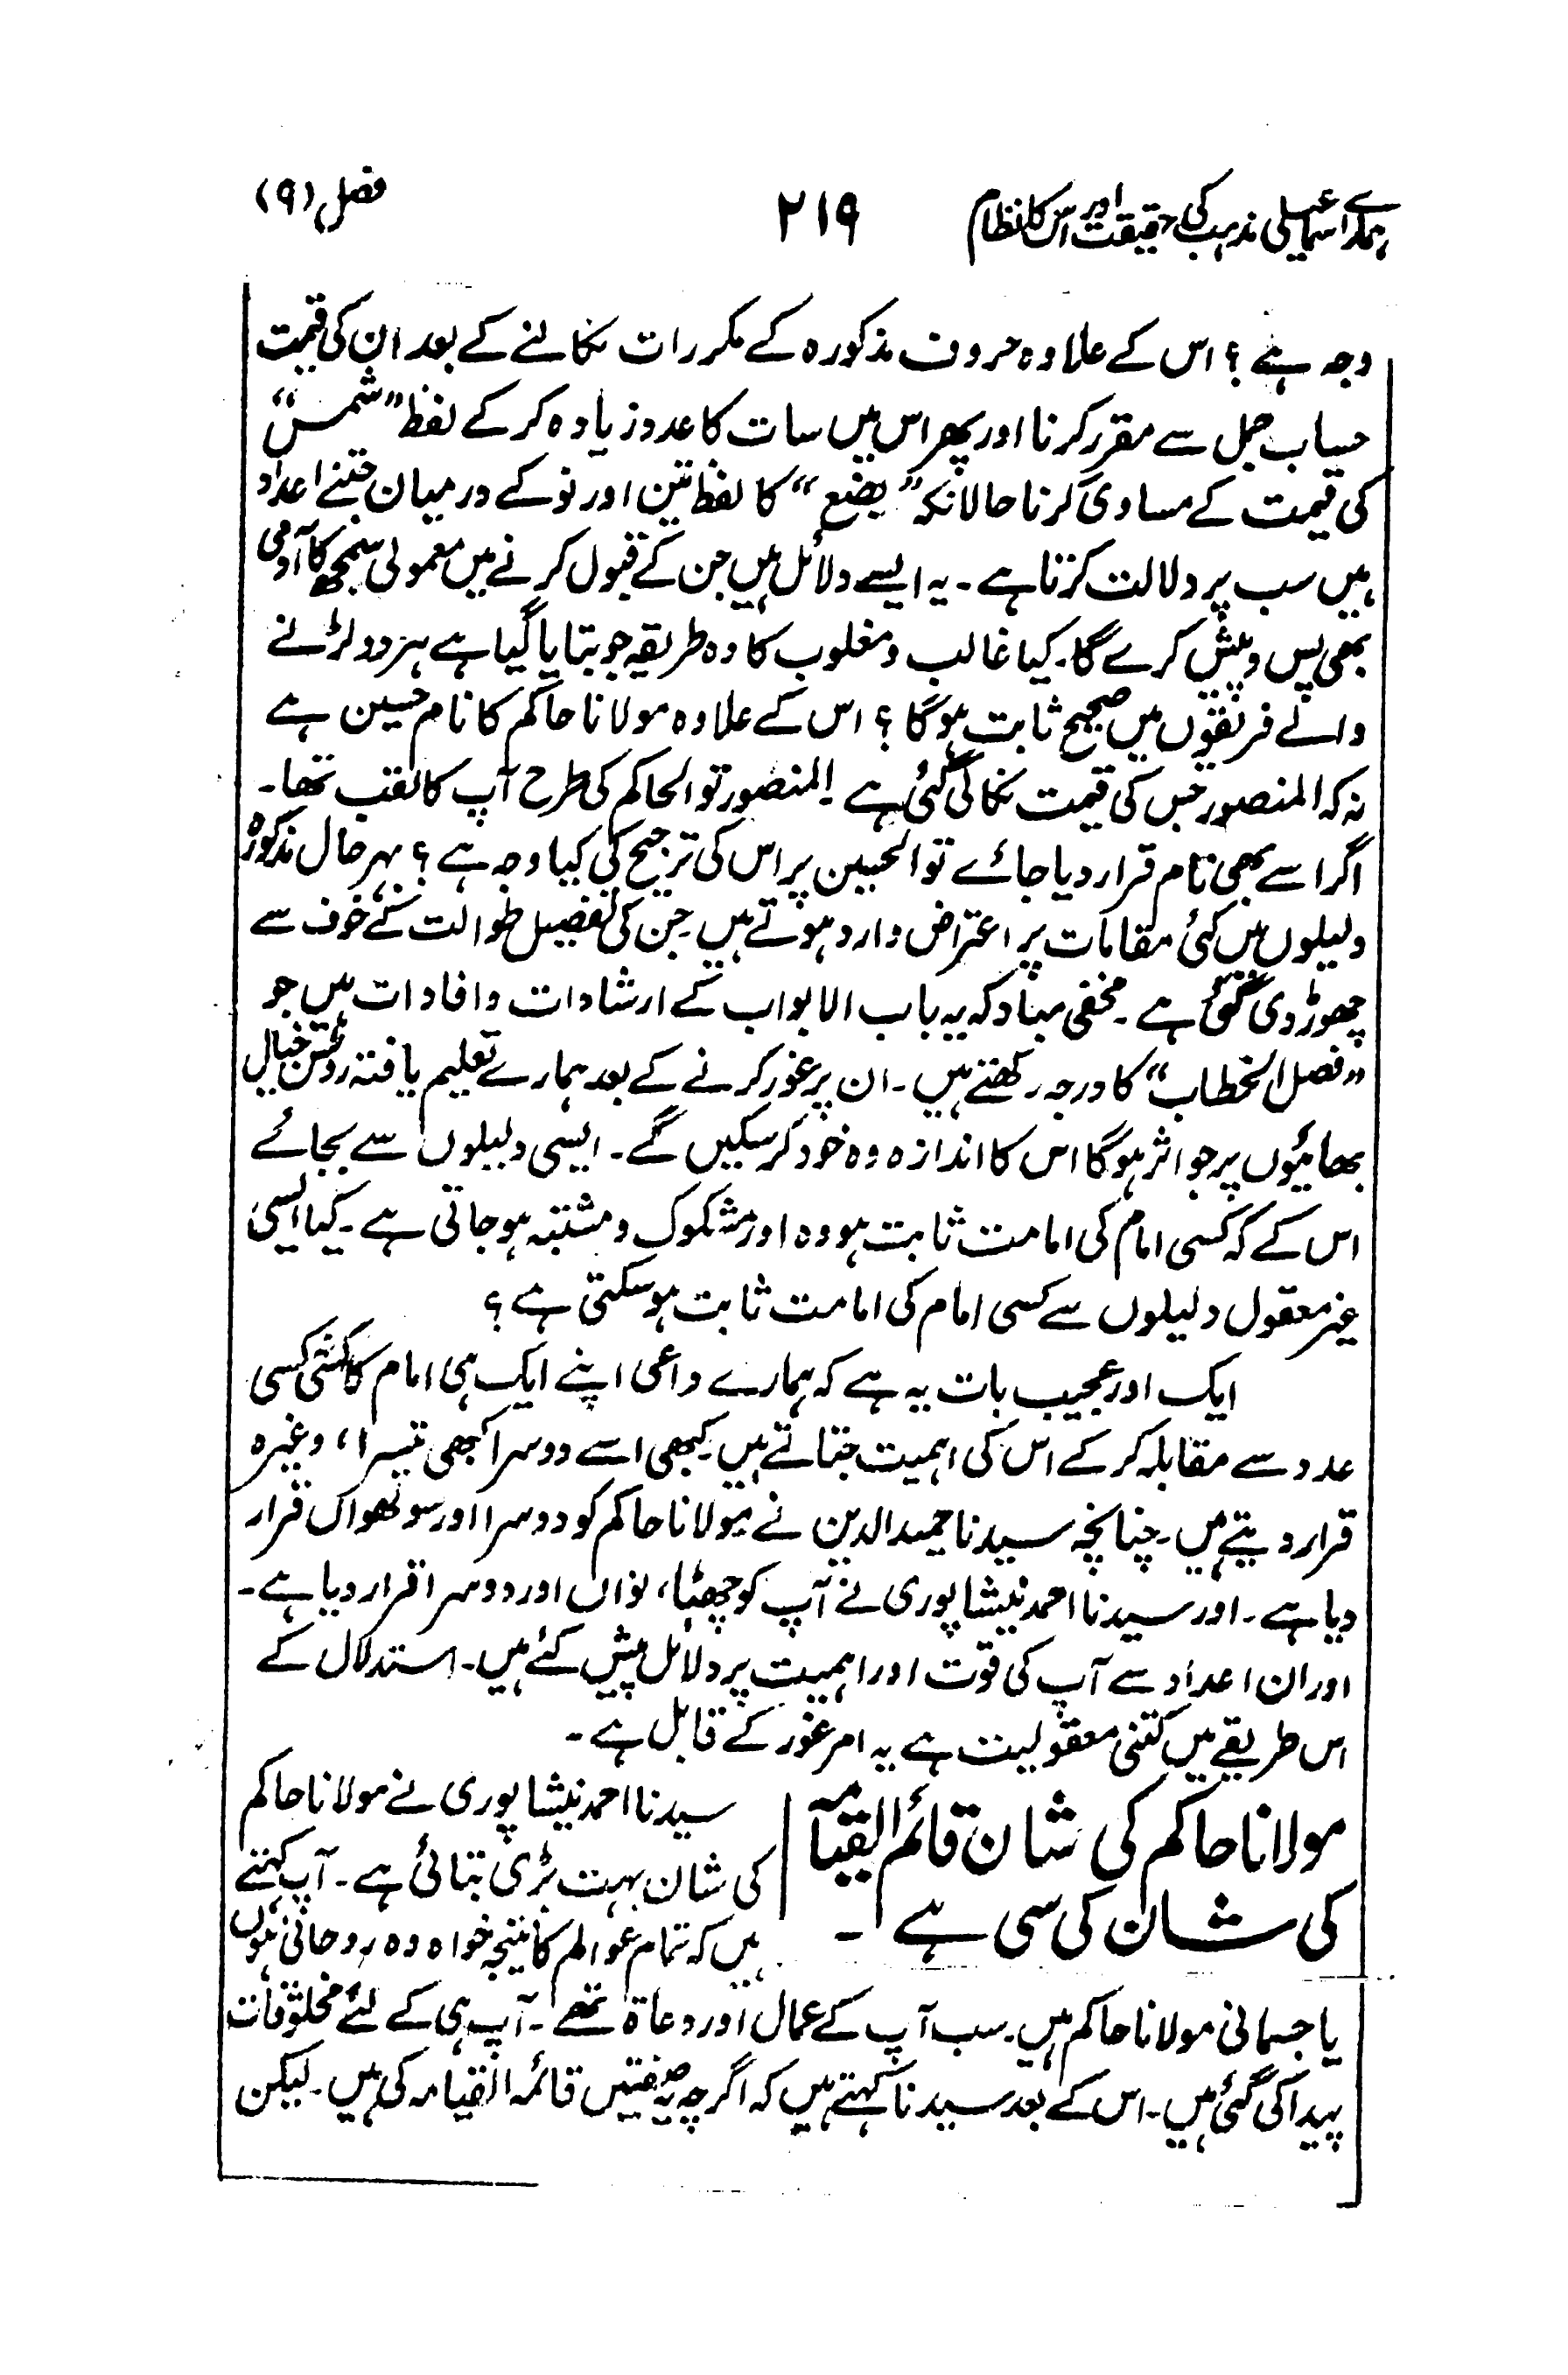 ہمارے اسماعیلی مذہب کی حقیقت اور اس کا نظام ۲۱۹ فصل (۹)
وجہ ہے ؟ اس کے علاوہ حروف مذکورہ کے مکررات نکالنے کے بعد ان کی قیمت
حساب جمل سے مقرر کرنا اور پھر اس میں سات کا عدد زیادہ کر کے لفظ ”شمس“
کی قیمت کے مساوی کرنا حالانکہ ”بضع“ کا لفظ تین اور نو کے درمیان جتنے اعداد
ہیں سب پر دلالت کرتا ہے ۔ یہ ایسے دلائل ہیں جن کے قبول کرنے میں معمولی سمجھ کا آدمی
بھی پس و پیش کرے گا۔ کیا غالب و مغلوب کا وہ طریقہ جو بتایا گیا ہے ہر دو لڑنے
والے فریقوں میں صحیح ثابت ہوگا ؟ اس کے علاوہ مولانا حاکم کا نام حسین ہے
نہ کہ المنصور جس کی قیمت نکالی گئی ہے ۔ المنصور تو الحاکم کی طرح آپ کا لقب تھا۔
اگر اسے بھی نام قرار دیا جائے تو الحسین پر اس کی ترجیح کی کیا وجہ ہے ؟ بہر حال مذکورہ
دلیلوں میں کئی مقامات پر اعتراض وارد ہوتے ہیں جن کی تفصیل طوالت کے خوف سے
چھوڑ دی گئی ہے ۔ مخفی مباد کہ یہ باب الابواب کے ارشادات و افادات ہیں جو
”فصل الخطاب“ کا درجہ رکھتے ہیں ۔ ان پر غور کرنے کے بعد ہمارے تعلیم یافتہ روشن خیال
بھائیوں پر جو اثر ہوگا اس کا اندازہ وہ خود کر سکیں گے ۔ ایسی دلیلوں سے بجائے
اس کے کہ کسی امام کی امامت ثابت ہو وہ اور مشکوک و مشتبہ ہو جاتی ہے ۔ کیا ایسی
غیر معقول دلیلوں سے کسی امام کی امامت ثابت ہو سکتی ہے ؟
ایک اور عجیب بات یہ ہے کہ ہمارے داعی اپنے ایک ہی امام کا کسی کسی
عدد سے مقابلہ کر کے اس کی اہمیت جتاتے ہیں۔ کبھی اسے دوسرا کبھی تیسرا ، وغیرہ
قرار دیتے ہیں ۔ چنانچہ سیدنا حمید الدین نے مولانا حاکم کو دوسرا اور سولھواں قرار
دیا ہے ۔ اور سیدنا احمد نیشاپوری نے آپ کو چھٹا ، نواں اور دوسرا قرار دیا ہے ۔
اور ان اعداد سے آپ کی قوت اور اہمیت پر دلائل پیش کئے ہیں ۔ استدلال کے
اس طریقے میں کتنی معقولیت ہے یہ امر غور کے قابل ہے ۔
مولانا حاکم کی شان قائم القیامۃ
کی شان کی سی ہے ۔
سیدنا احمد نیشاپوری نے مولانا حاکم
کی شان بہت بڑی بتائی ہے ۔ آپ کہتے
ہیں کہ تمام عوالم کا نتیجہ خواہ وہ روحانی ہوں
یا جسمانی مولانا حاکم ہیں ۔ سب آپ کے عمال اور دعاۃ تھے ۔ آپ ہی کے لئے مخلوقات
پیدا کی گئی ہیں ۔ اس کے بعد سیدنا کہتے ہیں کہ اگرچہ یہ صفتیں قائم القیامہ کی ہیں ۔ لیکن